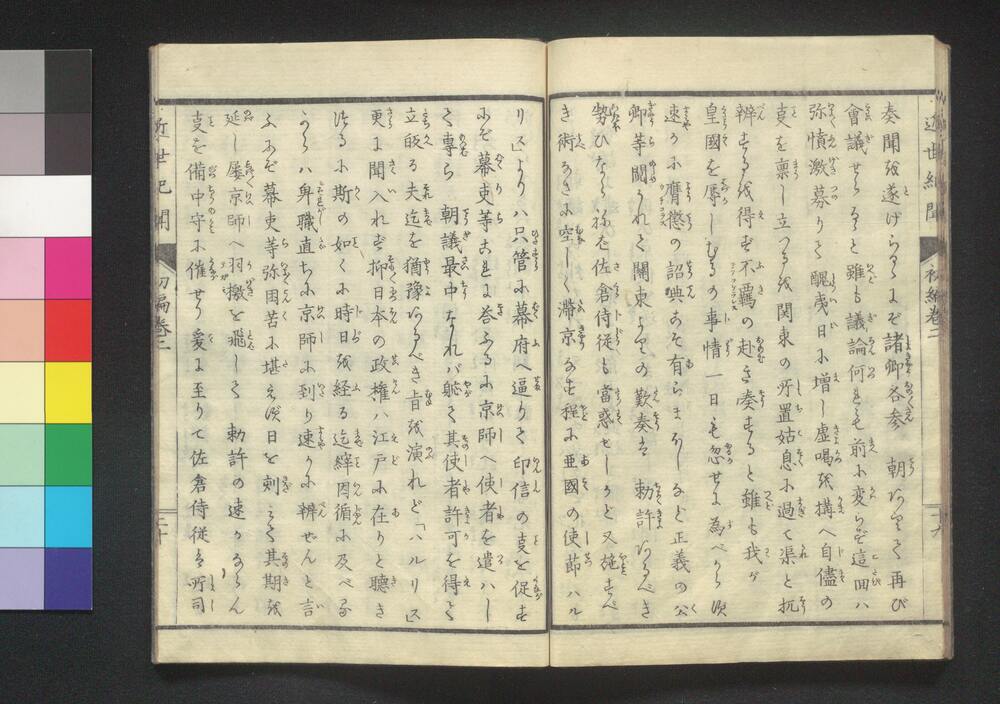 近世紀聞
初編巻二
奏聞を遂げらるゝにぞ諸卿各参 朝ありて再び
會議せらると雖も議論何れも前に変らず這回ハ
弥憤激募りて醜夷日に増し虚喝を搆へ自儘の
支を稟し立つるを関東の所置姑息に過て渠と抗
辨するを得ず不羈の赴き奏すると雖も我が
皇國を辱しむるの事情一日も忽せに為べからず
速かに膺懲の詔典こそ有らまほしなど正義の公
卿等闘かれて關東よりの歎奏は 勅許あるべき
勢ひならねば佐倉侍従も當惑せしかど又施すべ
き術なきに空しく滞京なす程に亜國の使節ハル
リスよりハ只管に幕府へ逼りて印信の支を促す
にぞ幕吏等これに答ふるに京師へ使者を遣ハし
て専ら 朝議最中なれバ軈て其使者許可を得て
立皈る夫迄を猶豫あるべき旨を演れど「ハルリス」
更に聞入れず抑日本の政権ハ江戸に在りと聴き
つるに斯の如くに時日を経る迄縡因循に及べる
からハ卑職直ちに京師に到り速かに辨ぜんと言
ふにぞ幕吏等弥困苦に堪えず日を刺えて其期を
延し屡京師へ羽檄を飛して 勅許の速かならん
支を備中守に催せり爰に至りて佐倉侍従は所司
近世紀聞
初編巻二
二十